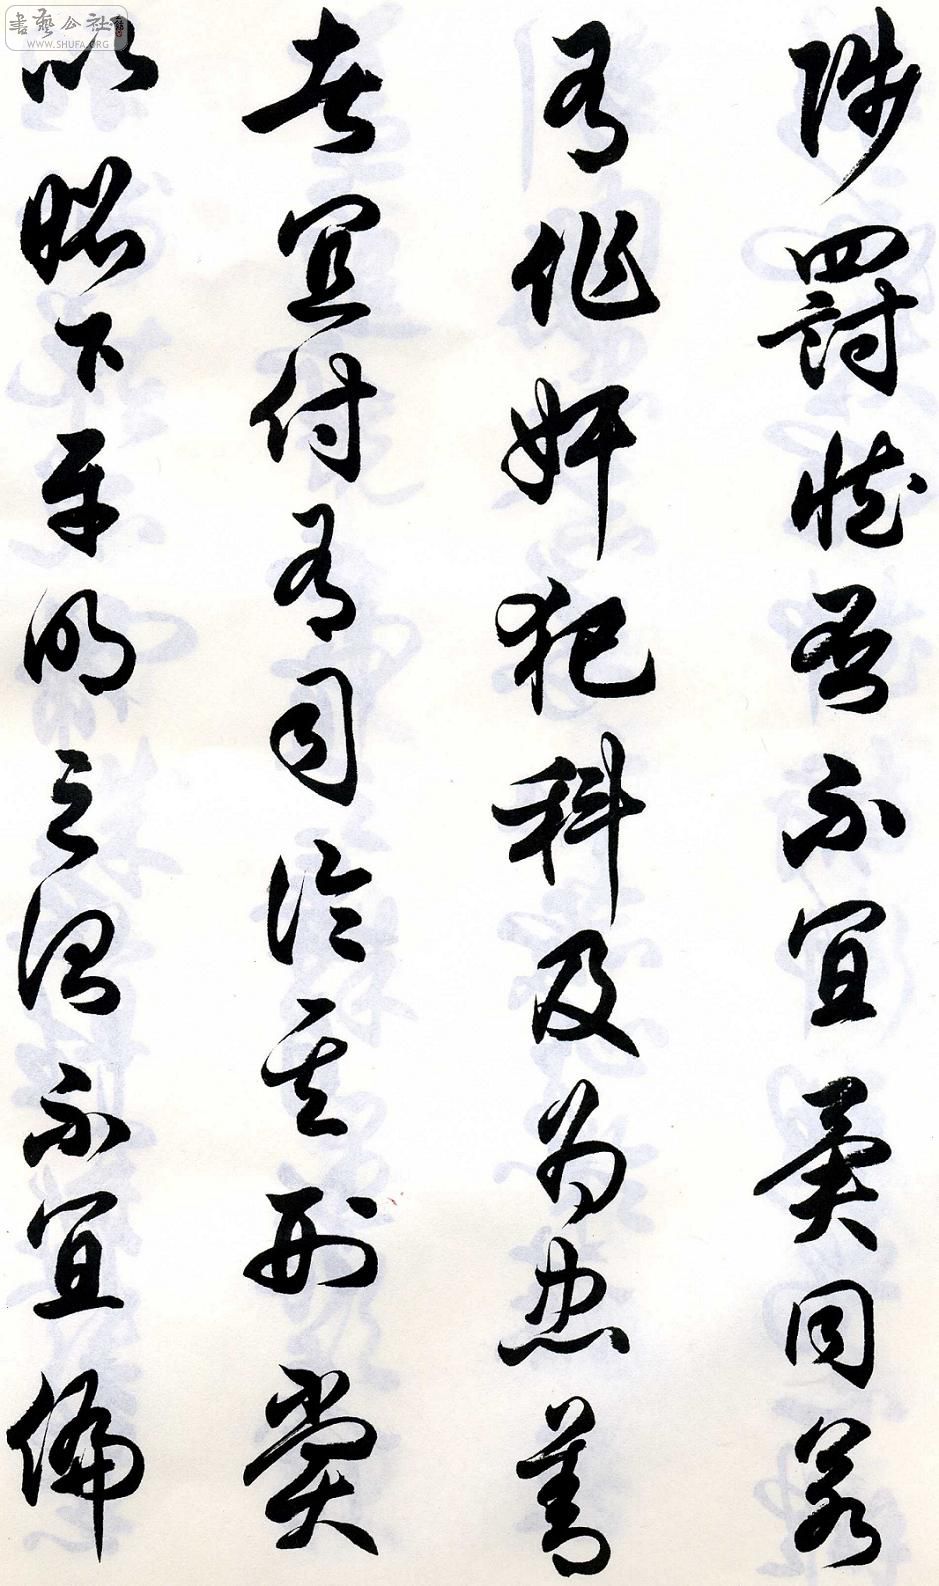 書藝公社
WWW.SHUFA.ORG
陟罰臧否不宜異同若
有作奸犯科及為忠善
者宜付有司論其刑賞
以昭下平明之治不宜偏